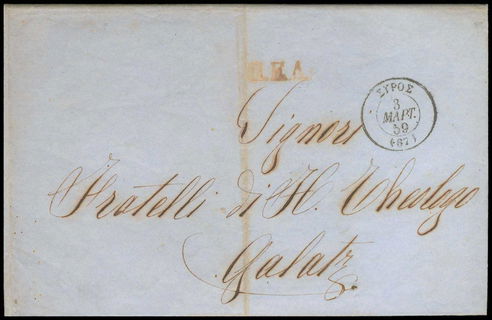 Π.Π.Δ.
ΣΥΡΟΣ
3
ΜΑΡΤ.
59
(67)
Signori
Fratelli di H. Theologo
Galatz